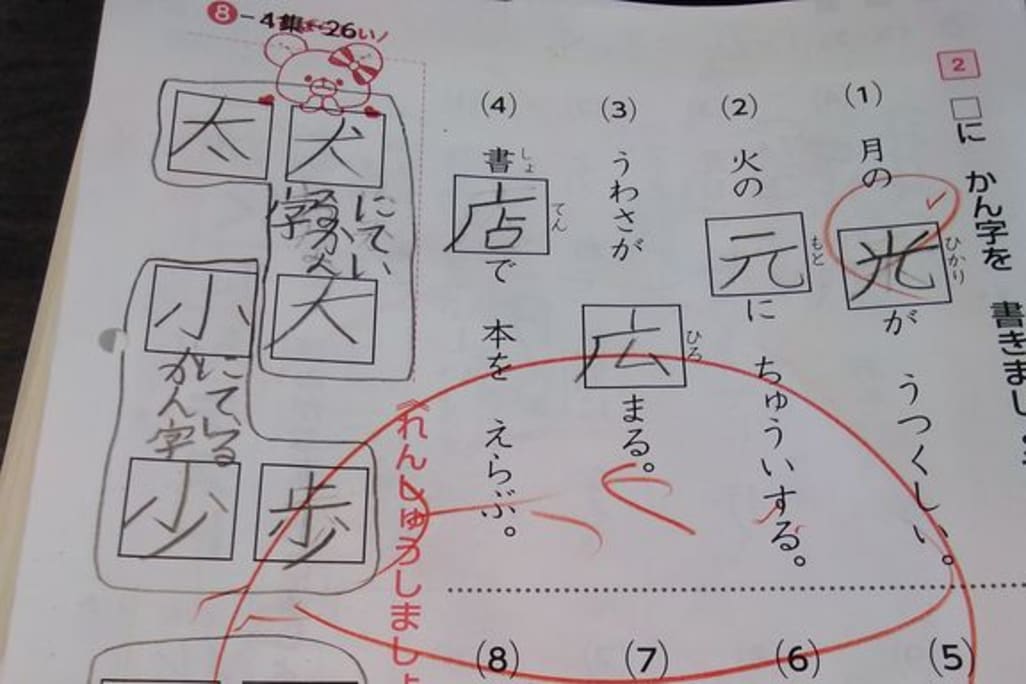 2 □に かん字を 書きまし
(1) 月の 光 が うつくしい。
ひかり
(2) 火の 元 に ちゅういする。
もと
(3) うわさが 広 まる。
ひろ
(4) 書 店 で 本を えらぶ。
しょ
てん
(5)
(6)
(7)
(8)
《れんしゅうしましょ
8-4集-26
い!
犬
にてい
るかん
字
大
太
歩
小
にてる
かん字
少